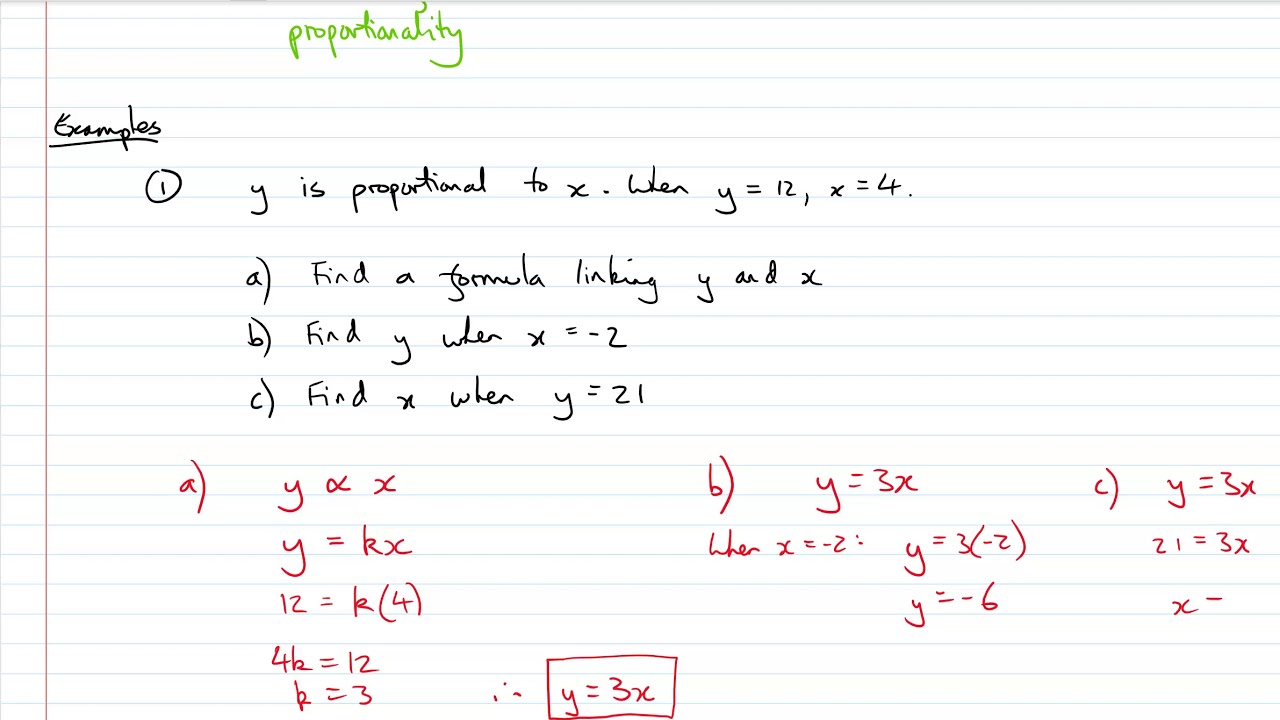 proportionality
Examples
① y is proportional to x. When y = 12, x = 4.
a) Find a formula linking y and x
b) Find y when x = -2
c) Find x when y = 21
a) y ∝ x
y = kx
12 = k(4)
4k = 12
k = 3 ∴ y = 3x
b) y = 3x
When x = -2: y = 3(-2)
y = -6
c) y = 3x
21 = 3x
x -